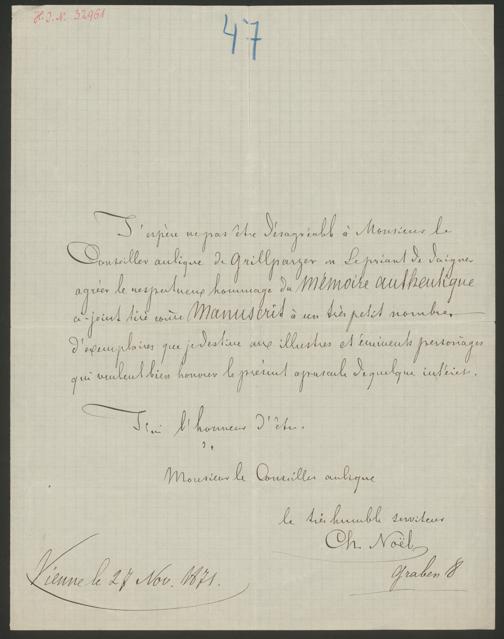 H. I. N. 32961
47
J'espère ne pas être désagréable à Monsieur le
Conseiller aulique de Grillparzer en Le priant de daigner
agréer le respectueux hommage du Mémoire authentique
ci-joint tiré comme Manuscrit à un très petit nombre
d'exemplaires que je destine aux illustres et éminents personnages
qui veulent bien honorer le présent opuscule de quelque intérêt.
J'ai l'honneur d'être
Monsieur le Conseiller aulique
le très humble serviteur
Ch. Noël
Graben 8
Vienne le 27 Nov. 1871.